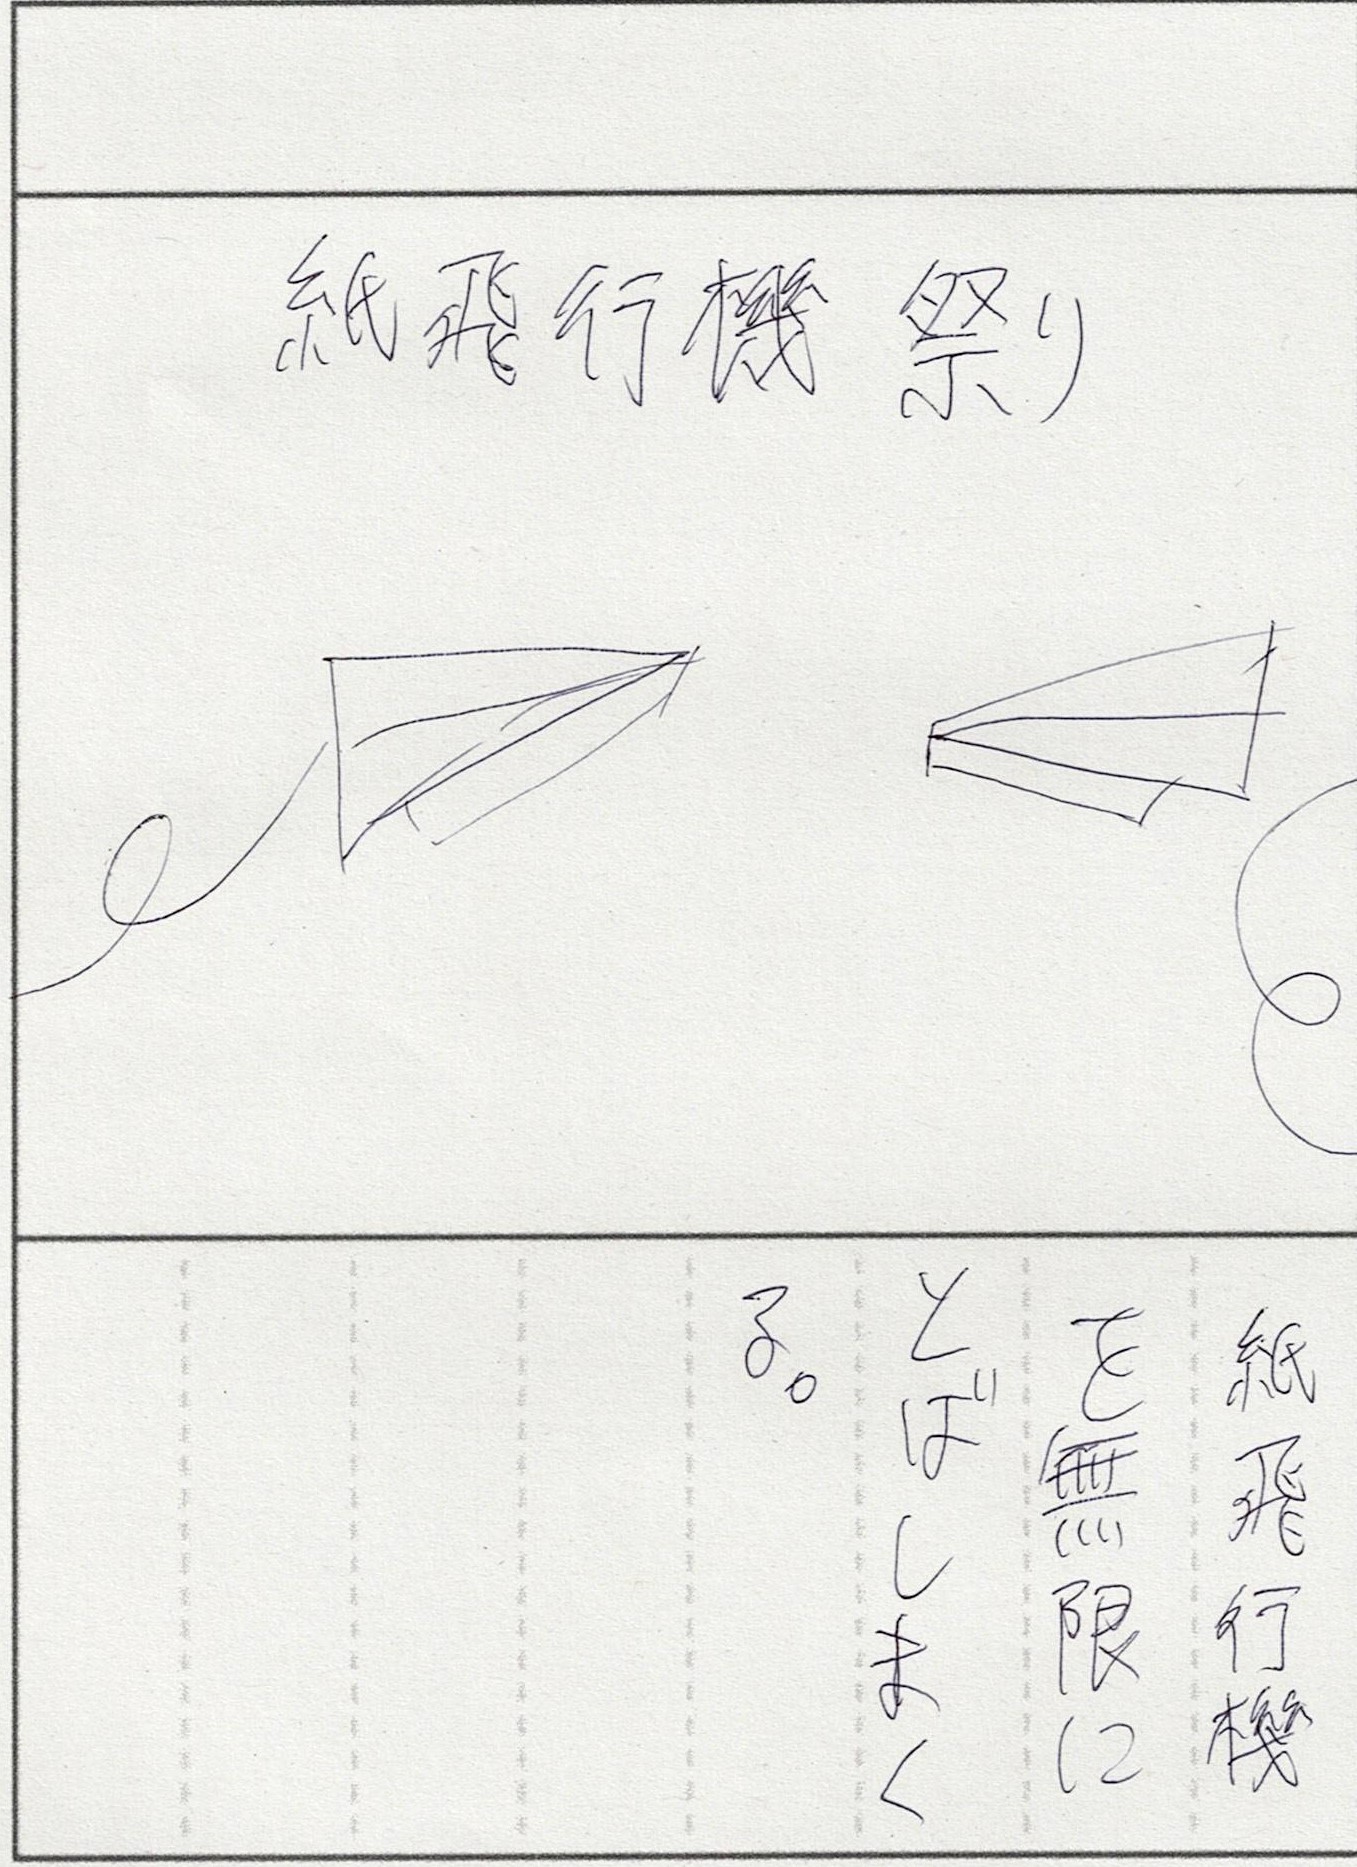 紙飛行機 祭り
紙飛行機
を無限に
とばしまく
る。